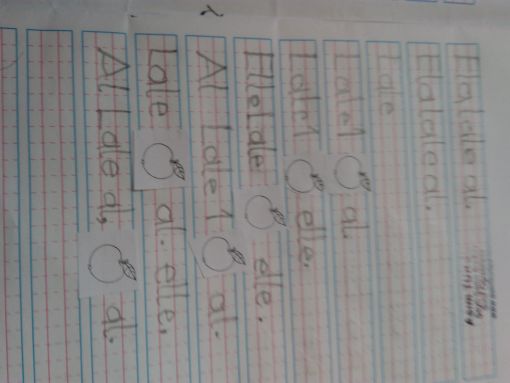 al.
Elalaleal.
Lale
Lale 1 al.
Lale 1 elle.
Elle Lale elle.
Al Lale 1 al.
Lale al. elle.
Al Lale al, al.